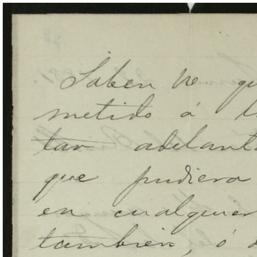 Saben Ve qu
metido á l
tar adelant
que pudiera
en cualquier
tambien, ó a